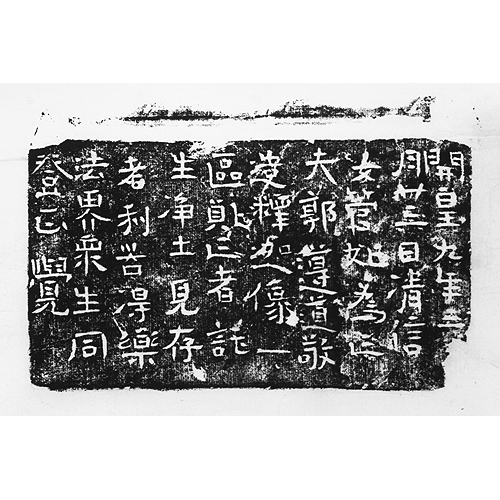 開皇九年三
月廿三日清信
女菅妃為亡
夫郭遵道敬
造釋迦像一
區願亡者託
生净土見存
者利苦得樂
法界衆生同
登正覺